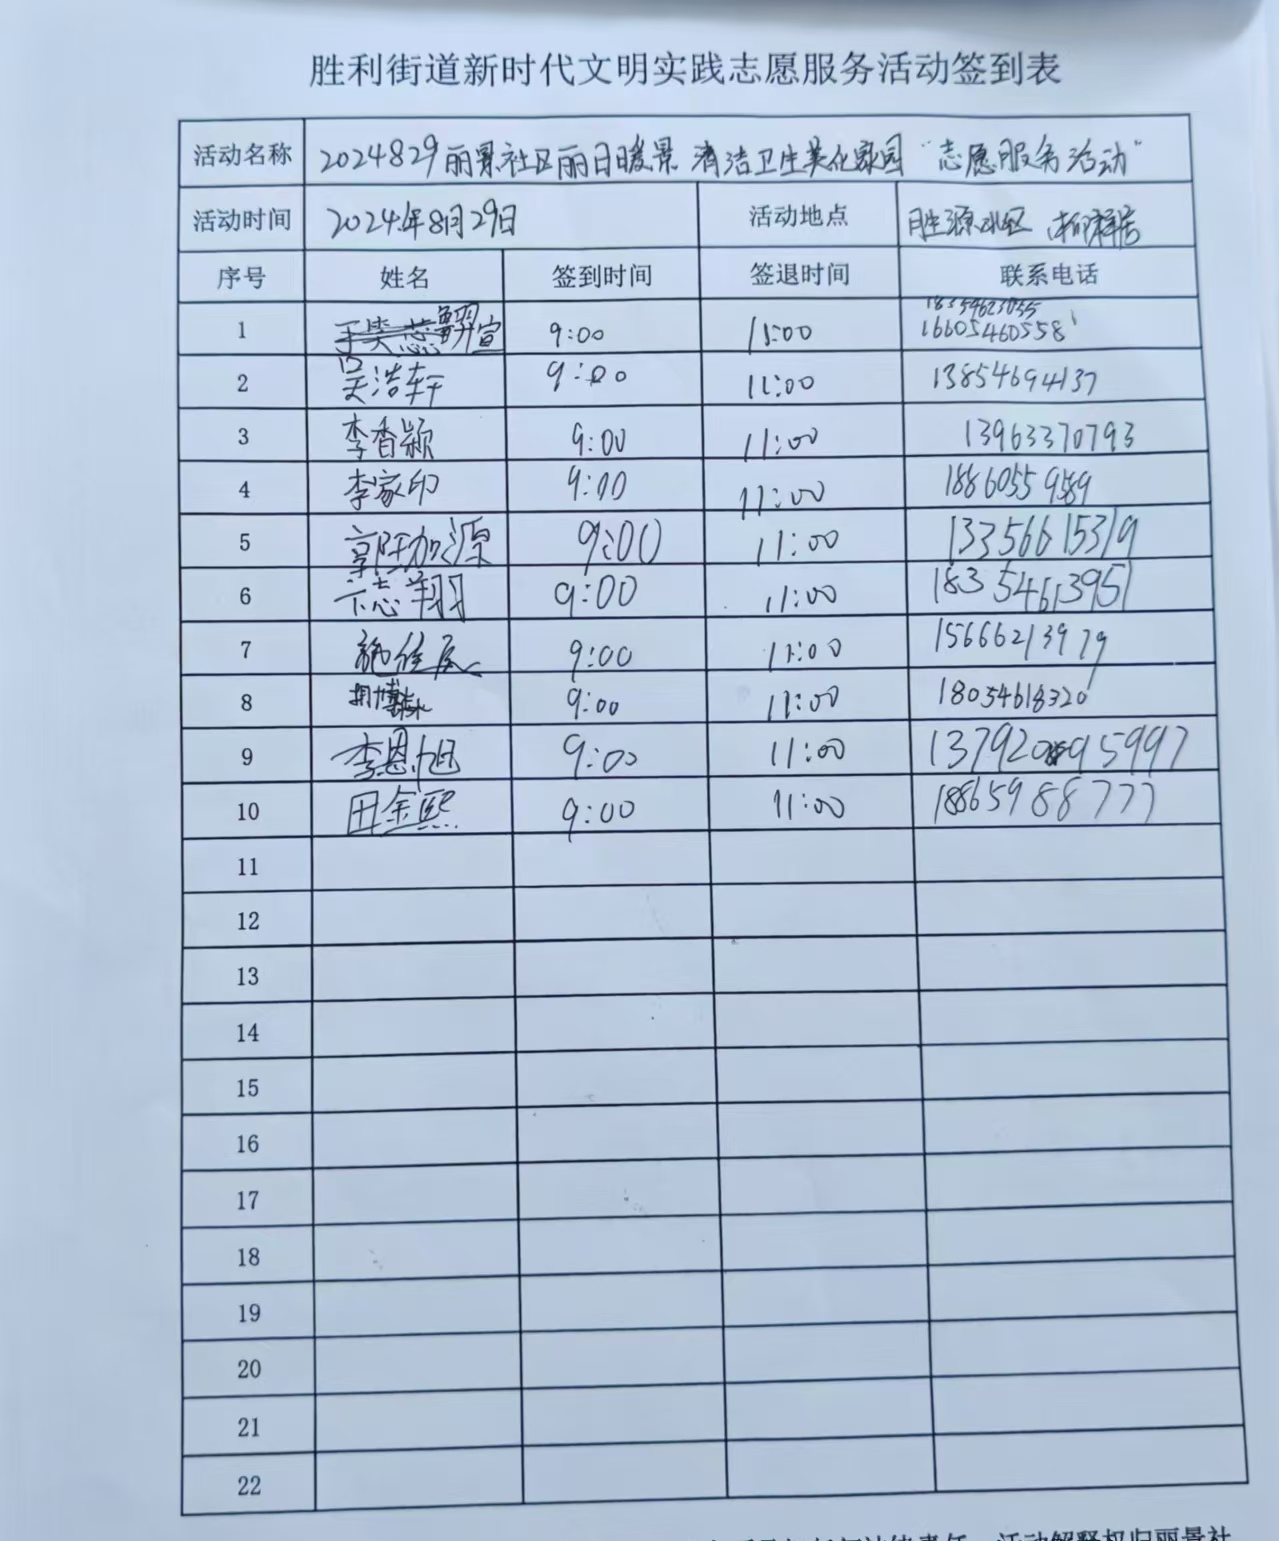 胜利街道新时代文明实践志愿服务活动签到表
活动名称 2024829丽景社区丽日暖景 清洁卫生美化家园"志愿服务活动"
活动时间 2024年8月29日 活动地点 胜源小区
序号 姓名 签到时间 签退时间 联系电话
1 宣 9:00 11:00 16605460558
2 吴浩轩 9:00 11:00 13854694137
3 李香颖 9:00 11:00 13963370793
4 李家印 9:00 11:00 18860559589
5 郭陈加源 9:00 11:00 13356615319
6 卞志翔 9:00 11:00 18354613951
7 施佳辰 9:00 11:00 15666213979
8 9:00 11:00 18054618320
9 李恩旭 9:00 11:00 13792095997
10 田金熙 9:00 11:00 18865988777
11
12
13
14
15
16
17
18
19
20
21
22
活动解释权归丽景社